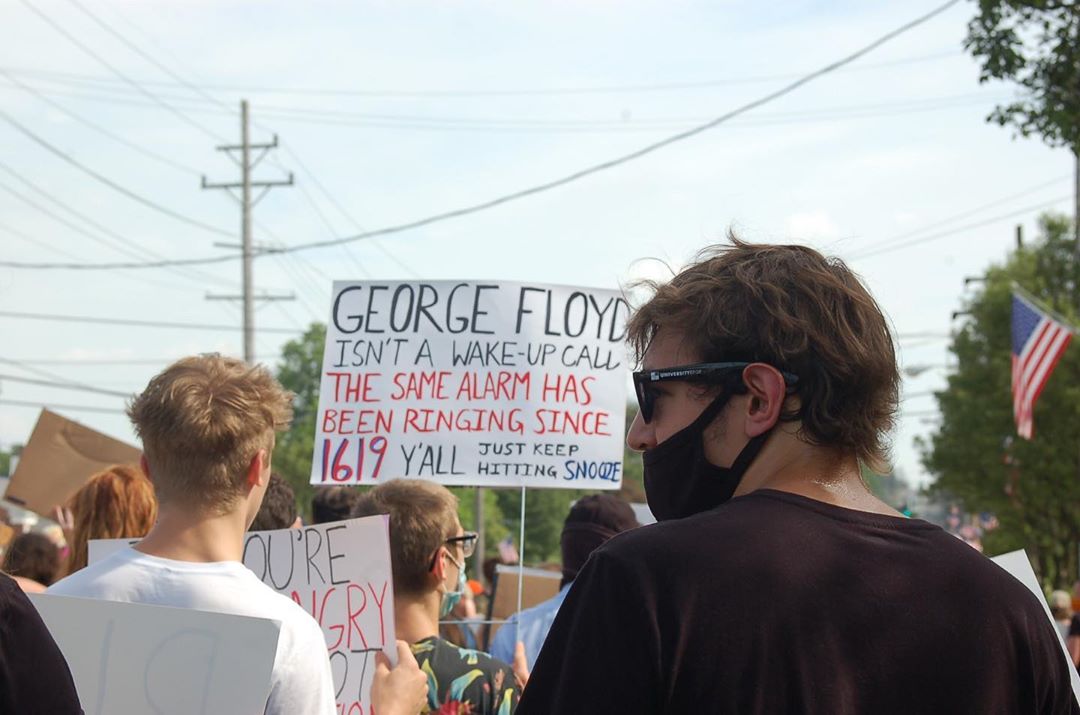 GEORGE FLOYD
ISN'T A WAKE-UP CALL
THE SAME ALARM HAS
BEEN RINGING SINCE
1619 Y'ALL JUST KEEP
HITTING SNOOZE
OU'RE
NGRY
OT
UNIVERSITY